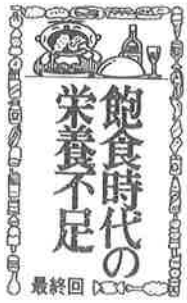 飽食時代の
栄養不足
最終回